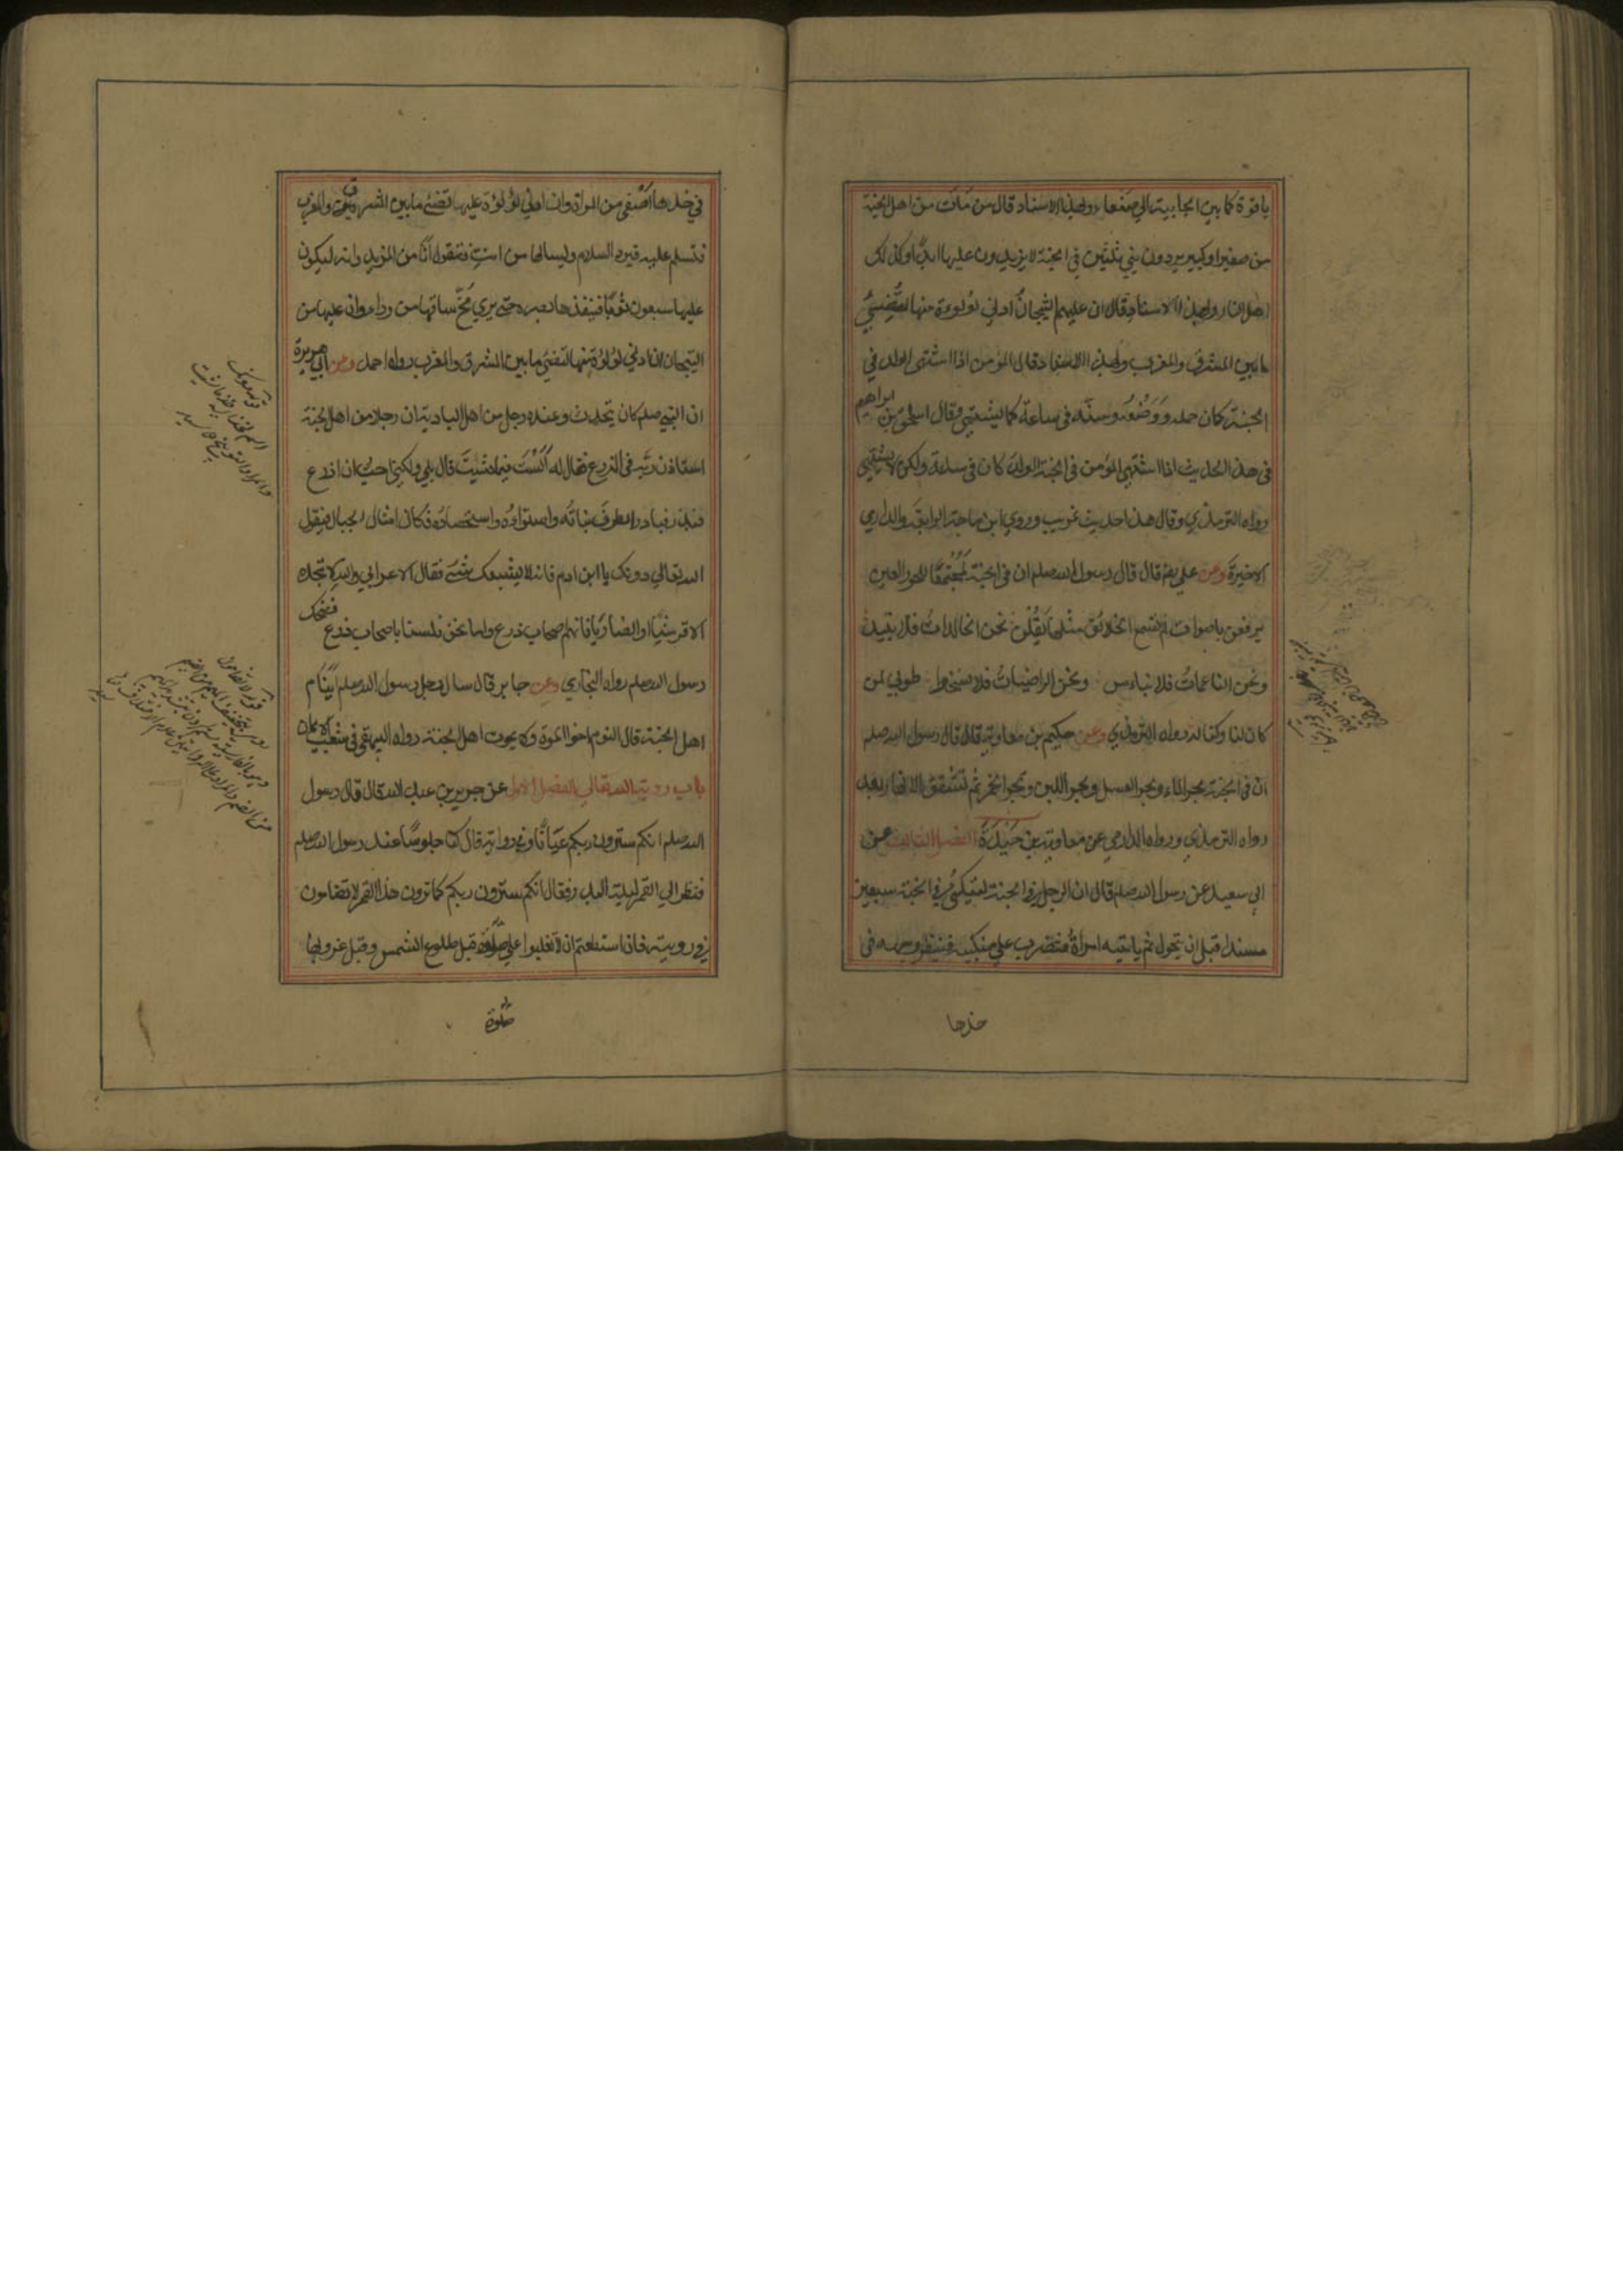 ياقوة كما بين الجابية الى صنعاء وبهذا الاسناد قال من مات من اهل الجنة
من صغير او كبير يردون بني ثلثين في الجنة لا يزيدون عليها ابدًا وكذلك
اهل النار وبهذا الاسناد قال ان عليهم التيجان ادني لؤلوءة منها لتضيئ
ما بين المشرق والمغرب وبهذا الاسناد قال المؤمن اذا اشتهى الولد في
الجنة كان حمله ووضعه وسنه في ساعة كما يشتهي وقال اسحق بن ابراهيم
في هذا الحديث اذا اشتهى المؤمن في الجنة الولد كان في ساعة ولكن لا يشتهي
رواه الترمذي وقال هذا حديث غريب وروي ابن ماجة الرابعة والدارمي
الاخيرة وعن علي رض قال قال رسول الله صلعم ان في الجنة لمجتمعًا للحور العين
يرفعن باصوات لم تسمع الخلائق مثلها يقلن نحن الخالدات فلا نبيد
ونحن الناعمات فلا نباءس ونحن الراضيات فلا نسخط طوبي لمن
كان لنا وكنا له رواه الترمذي وعن حكيم بن معاوية قال قال رسول الله صلعم
ان في الجنة بحر الماء وبحر العسل وبحر اللبن وبحر الخمر ثم تشقق الانهار بعد
رواه الترمذي ورواه الدارمي عن معاوية بن حيدة الفصل الثالث عن
ابي سعيد عن رسول الله صلعم قال ان الرجل في الجنة ليتكئ في الجنة سبعين
مسندا قبل ان يتحول ثم ياتيه امراة فتضرب علي منكبيه فينظر وجهه في
خدها
في خدها اصفى من المراة وان ادني لؤلوة عليها تضئ ما بين المشرق والمغرب
فتسلم عليه فيرد السلام ويسالها من انت فتقول انا من المزيد وانه ليكون
عليها سبعون ثوبًا فينفذها بصره حتى يري مخ ساقها من وراء وان عليها من
التيجان ان ادني لؤلؤة منها لتضئ ما بين المشرق والمغرب رواه احمد وعن ابي هريرة
ان النبي صلعم كان يتحدث وعنده رجل من اهل البادية ان رجلا من اهل الجنة
استاذن ربه في الزرع فقال له الست فيما شئت قال بلي ولكني احب ان ازرع
فبذر فبادر الطرف نباته واستواءه واستحصاده فكان امثال الجبال فيقول
الله تعالي دونك يا ابن ادم فانه لا يشبعك شئ فقال الاعرابي والله لا تجده
الا قرشيا او انصاريا فانهم اصحاب زرع واما نحن فلسنا باصحاب زرع فضحك
رسول الله صلعم رواه البخاري وعن جابر قال سال رجل رسول الله صلعم اينام
اهل الجنة قال النوم اخو الموة ولا يموت اهل الجنة رواه البيهقي في شعب الايمان
باب روية الله تعالي الفصل الاول عن جرير بن عبد الله قال قال رسول
الله صلعم انكم سترون ربكم عيانًا وفي رواية قال كنا جلوسًا عند رسول الله صلعم
فنظر الي القمر ليلة البدر فقال انكم سترون ربكم كما ترون هذا القمر لا تضامون
في رويته فان استطعتم ان لا تغلبوا علي صلوة قبل طلوع الشمس وقبل غروبها
صلوة